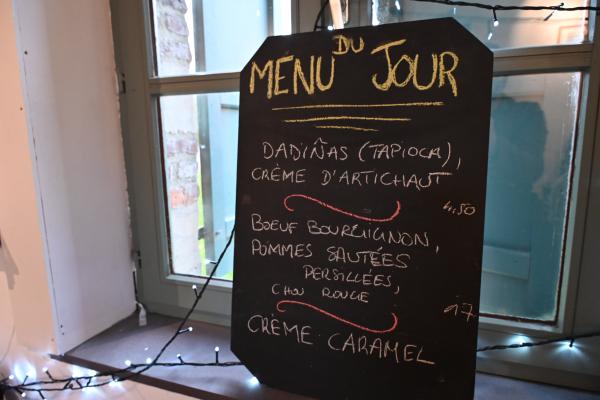 MENU DU JOUR
DADIÑAS (TAPIOCA),
CRÈME D'ARTICHAUT
4,50
BOEUF BOURGUIGNON,
POMMES SAUTÉES
PERSILLÉES,
CHOU ROUGE
17
CRÈME CARAMEL